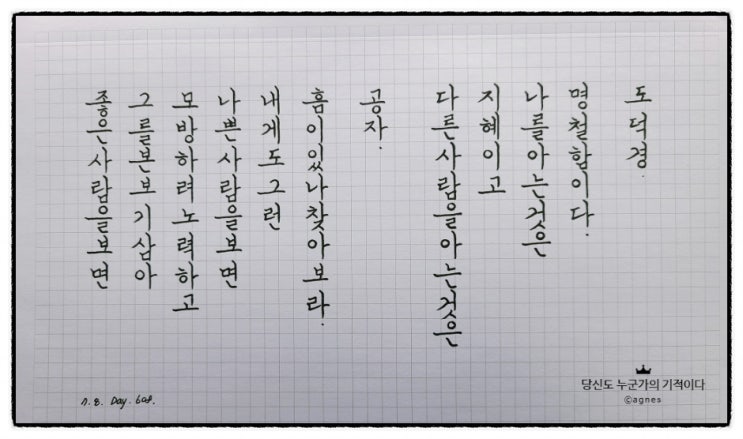 좋은사람을보면
그를본보기삼아
모방하려노력하고
나쁜사람을보면
내게도그런
흠이있나찾아보라.
공자.
다른사람을아는것은
지혜이고
나를아는것은
명철함이다.
도덕경.
7. 8. Day. 608.
당신도 누군가의 기적이다
©agnes